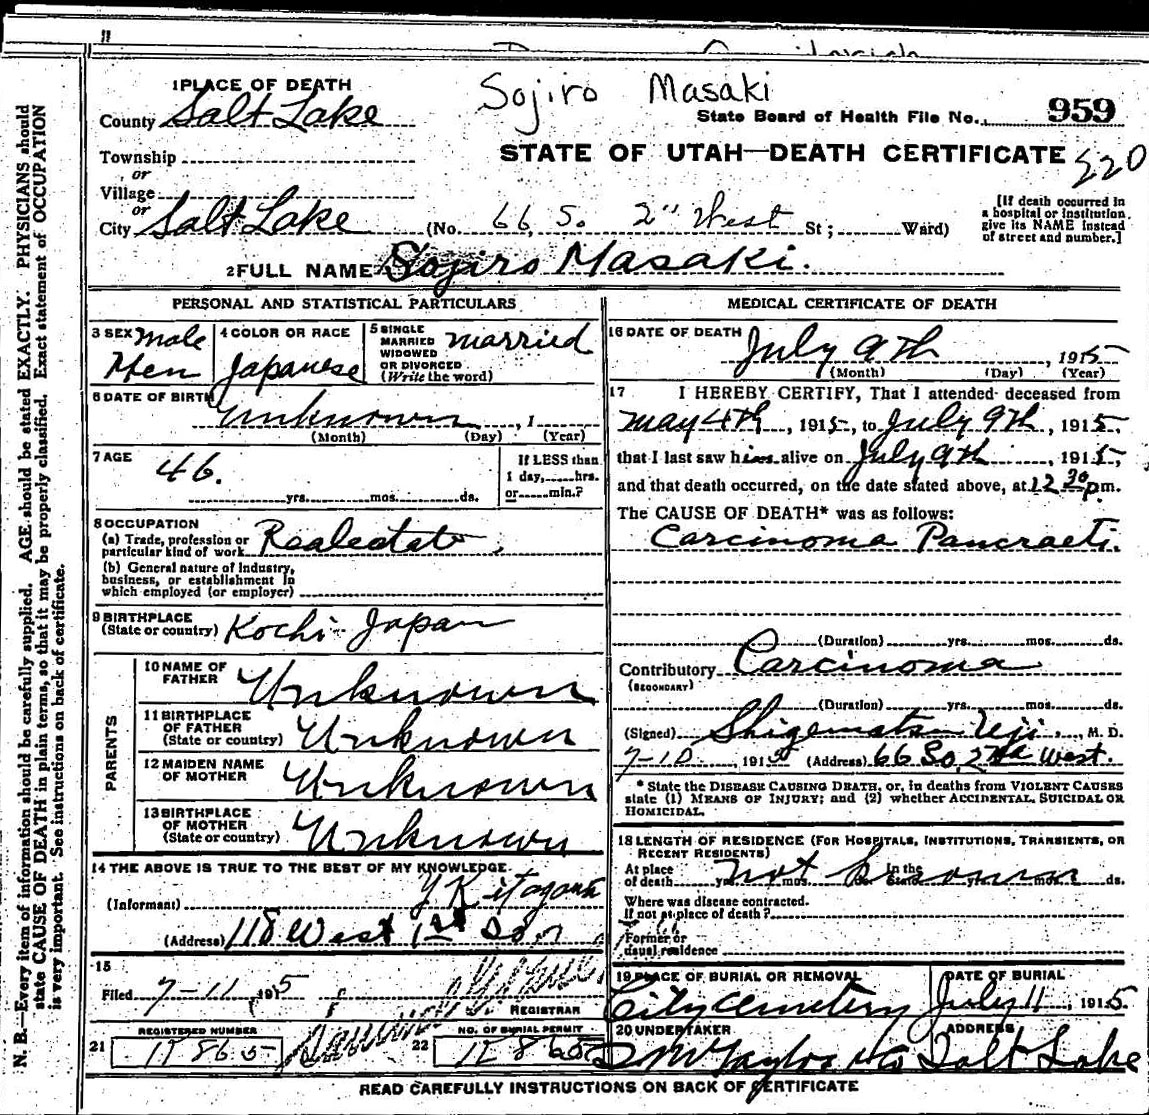 11
1 PLACE OF DEATH Sojiro Masaki
County Salt Lake State Board of Health File No. 959
Township
or
Village
or
STATE OF UTAH—DEATH CERTIFICATE 520
City Salt Lake (No. 66 S. 2" West St; Ward)
[If death occurred in a hospital or institution, give its NAME instead of street and number.]
2 FULL NAME Sojiro Masaki.
PERSONAL AND STATISTICAL PARTICULARS
3 SEX male
4 COLOR OR RACE Japanese
5 SINGLE MARRIED WIDOWED OR DIVORCED (Write the word) married
6 DATE OF BIRTH unknown, 1
(Month) (Day) (Year)
7 AGE 46. yrs. mos. ds.
If LESS than 1 day, hrs. or min.?
8 OCCUPATION
(a) Trade, profession or particular kind of work Realestate
(b) General nature of Industry, business, or establishment in which employed (or employer)
9 BIRTHPLACE
(State or country) Kochi Japan
PARENTS
10 NAME OF FATHER Unknown
11 BIRTHPLACE OF FATHER (State or country) Unknown
12 MAIDEN NAME OF MOTHER Unknown
13 BIRTHPLACE OF MOTHER (State or country) Unknown
14 THE ABOVE IS TRUE TO THE BEST OF MY KNOWLEDGE
(Informant) Y Kitagawa
(Address) 118 West 1st So.
15
Filed 7-11 1915
REGISTRAR
21 REGISTERED NUMBER
22 NO. OF BURIAL PERMIT
MEDICAL CERTIFICATE OF DEATH
16 DATE OF DEATH July 9th, 1915
(Month) (Day) (Year)
17 I HEREBY CERTIFY, That I attended deceased from
May 4th, 1915, to July 9th, 1915,
that I last saw him alive on July 9th, 1915,
and that death occurred, on the date stated above, at 12 30 pm.
The CAUSE OF DEATH* was as follows:
Carcinoma Pancraeti.
(Duration) yrs. mos. ds.
Contributory Carcinoma
(SECONDARY)
(Duration) yrs. mos. ds.
(Signed) Shigematsu Uji, M. D.
7-10, 1915 (Address) 66 So. 2nd West.
* State the DISEASE CAUSING DEATH, or, in deaths from VIOLENT CAUSES
state (1) MEANS OF INJURY; and (2) whether ACCIDENTAL, SUICIDAL OR
HOMICIDAL.
18 LENGTH OF RESIDENCE (FOR HOSPITALS, INSTITUTIONS, TRANSIENTS, OR
RECENT RESIDENTS)
At place of death yrs. mos. ds. In the State yrs. mos. ds. not known
Where was disease contracted.
If not at place of death?
Former or
usual residence
19 PLACE OF BURIAL OR REMOVAL City Cemetery
DATE OF BURIAL July 11, 1915.
20 UNDERTAKER S M Taylor & Co
ADDRESS Salt Lake
READ CAREFULLY INSTRUCTIONS ON BACK OF CERTIFICATE
N. B.—Every item of information should be carefully supplied. AGE should be stated EXACTLY. PHYSICIANS should
state CAUSE OF DEATH in plain terms, so that it may be properly classified. Exact statement of OCCUPATION
is very important. See instructions on back of certificate.